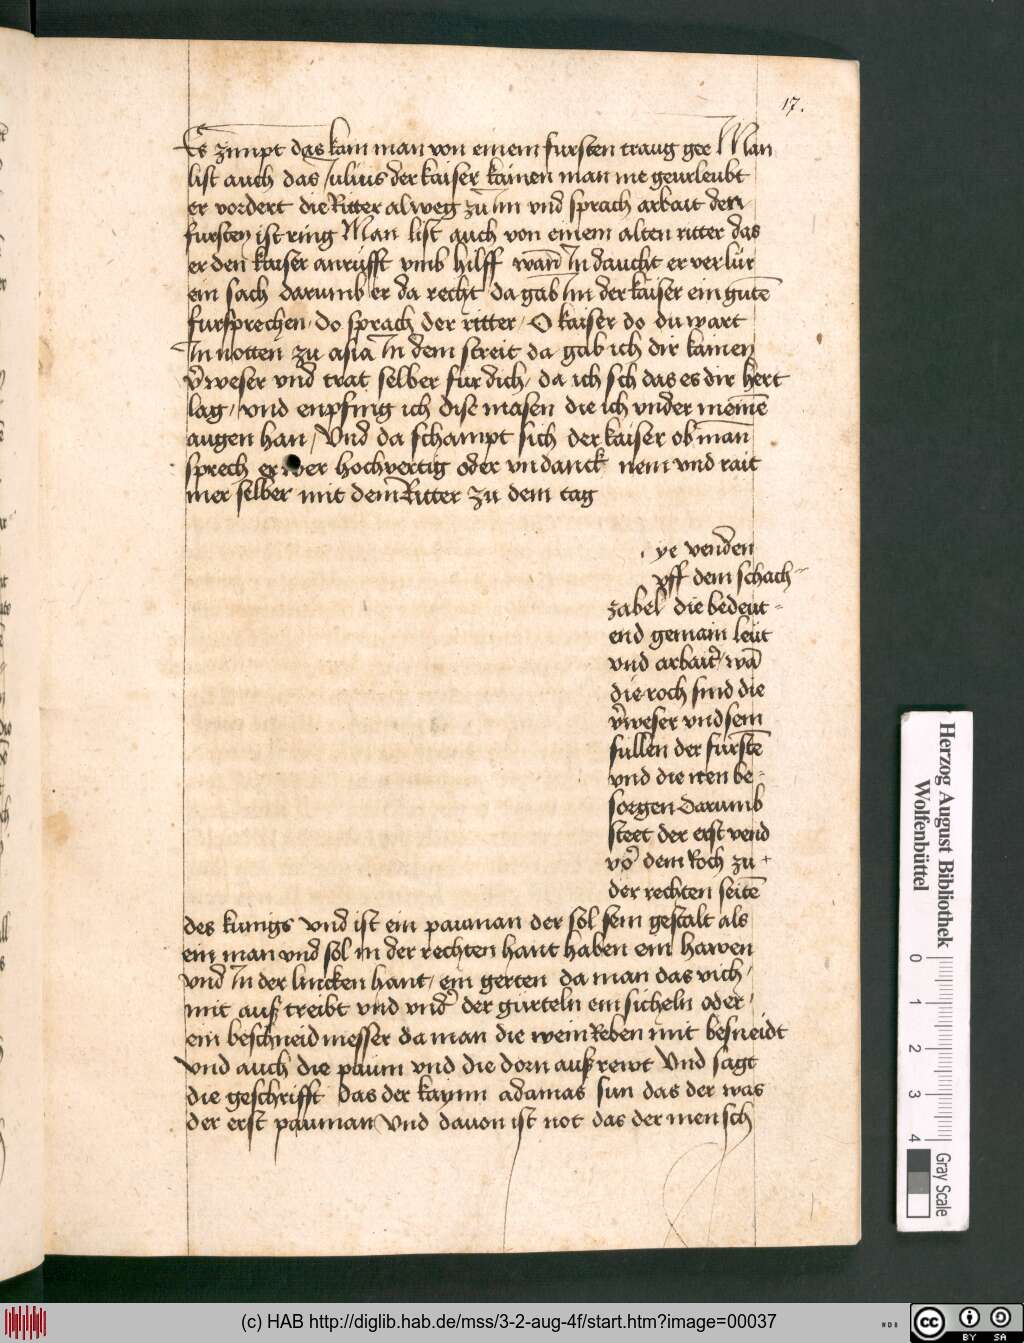 17.
Es zimpt das kain man von einem fursten traurig gee Man
list auch das Julius der kaiser kainen man nie geurleubt
er vordert die Ritter alweg zů Im vnd sprach arbait der
fursten ist ring Man list auch von einem alten ritter das
er den kaiser anrüfft vmb hilff wañ In daucht er verlür
ein sach darumb er da recht da gab Im der kaiser ein gutē
fursprechen / do sprach der ritter / O kaiser do du wart
In notten zu asia In dem streit da gab ich dir kainen
v̉weser vnd trat selber fur dich / da ich sch das es dir hert
lag / vnd enpfing ich dise masen die ich vnder meinē
augen han / Vnd da schampt sich der kaiser ob man
sprech er wer hochvertig oder vndanck nem vnd rait
mer selber mit dem Ritter zu dem tag
ye venden
vff dem schach-
zabel die bedeut-
end gemain leüt
vnd arbait̉ / wā
die roch sind die
v̉weser vnd sein
füllen der fürstē
vnd die iren be-
sorgen Darumb
steet der erst vend
vo̓ dem Roch zu
der rechten seitē
des kunigs vnd ist ein pauman der sol sein gestalt als
ein man vnd sol in der rechten hant haben ein hawen
vnd In der lincken hant / ein gerten da man das vich /
mit auß treibt vnd vnd̓ der gürteln ein sicheln oder /
ein beschneid messer da man die wein Reben mit besneidt
vnd auch die paüm vnd die dorn auß rewt Vnd sagt
die geschrifft Das der kaynn adamas sun das der was
der erst pauman Vnd dauon ist not das der mensch
Herzog August Bibliothek
Wolfenbüttel
0
1
2
3
4
Gray Scale
(c) HAB http://diglib.hab.de/mss/3-2-aug-4f/start.htm?image=00037
WDB
cc
BY SA